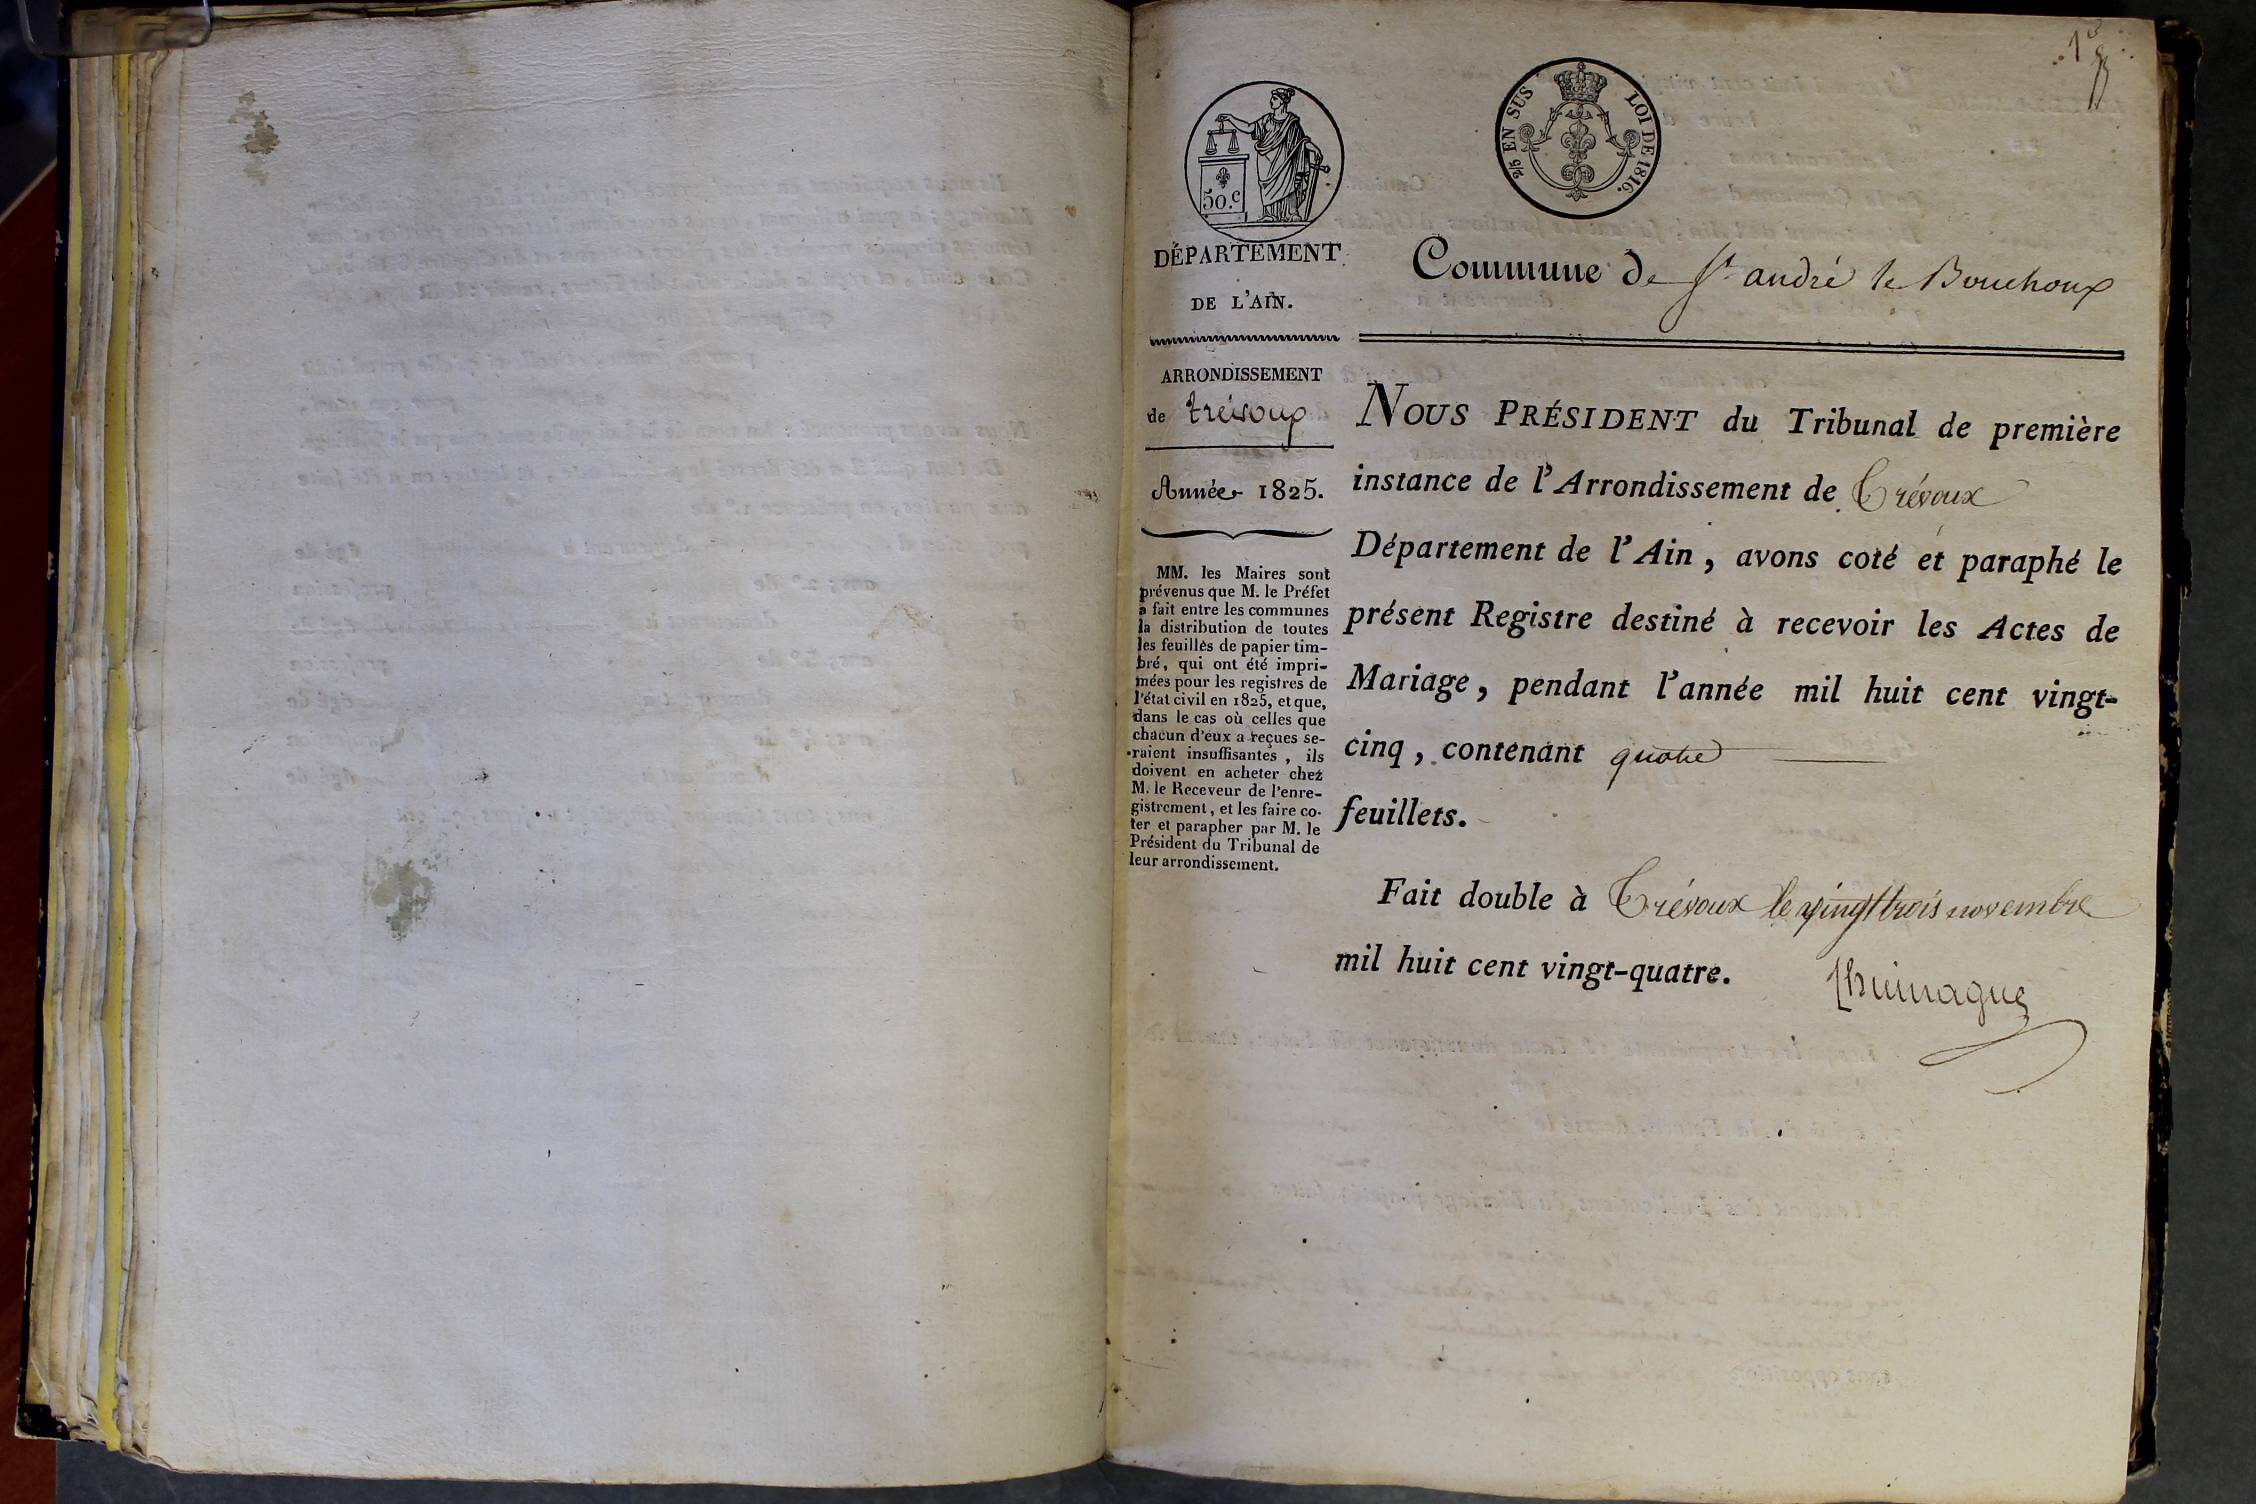 2/5 EN SUS
LOI DE 1816.
50.c
DÉPARTEMENT
DE L'AIN.
Commune de St andré le Bouchoux
ARRONDISSEMENT
de trévoux
Année 1825.
MM. les Maires sont
prévenus que M. le Préfet
a fait entre les communes
la distribution de toutes
les feuilles de papier tim-
bré, qui ont été impri-
mées pour les registres de
l'état civil en 1825, et que,
dans le cas où celles que
chacun d'eux a reçues se-
raient insuffisantes, ils
doivent en acheter chez
M. le Receveur de l'enre-
gistrement, et les faire co-
ter et parapher par M. le
Président du Tribunal de
leur arrondissement.
NOUS PRÉSIDENT du Tribunal de première
instance de l'Arrondissement de Trévoux
Département de l'Ain, avons coté et paraphé le
présent Registre destiné à recevoir les Actes de
Mariage, pendant l'année mil huit cent vingt-
cinq, contenant quatre
feuillets.
Fait double à Trévoux le vingt trois novembre
mil huit cent vingt-quatre.